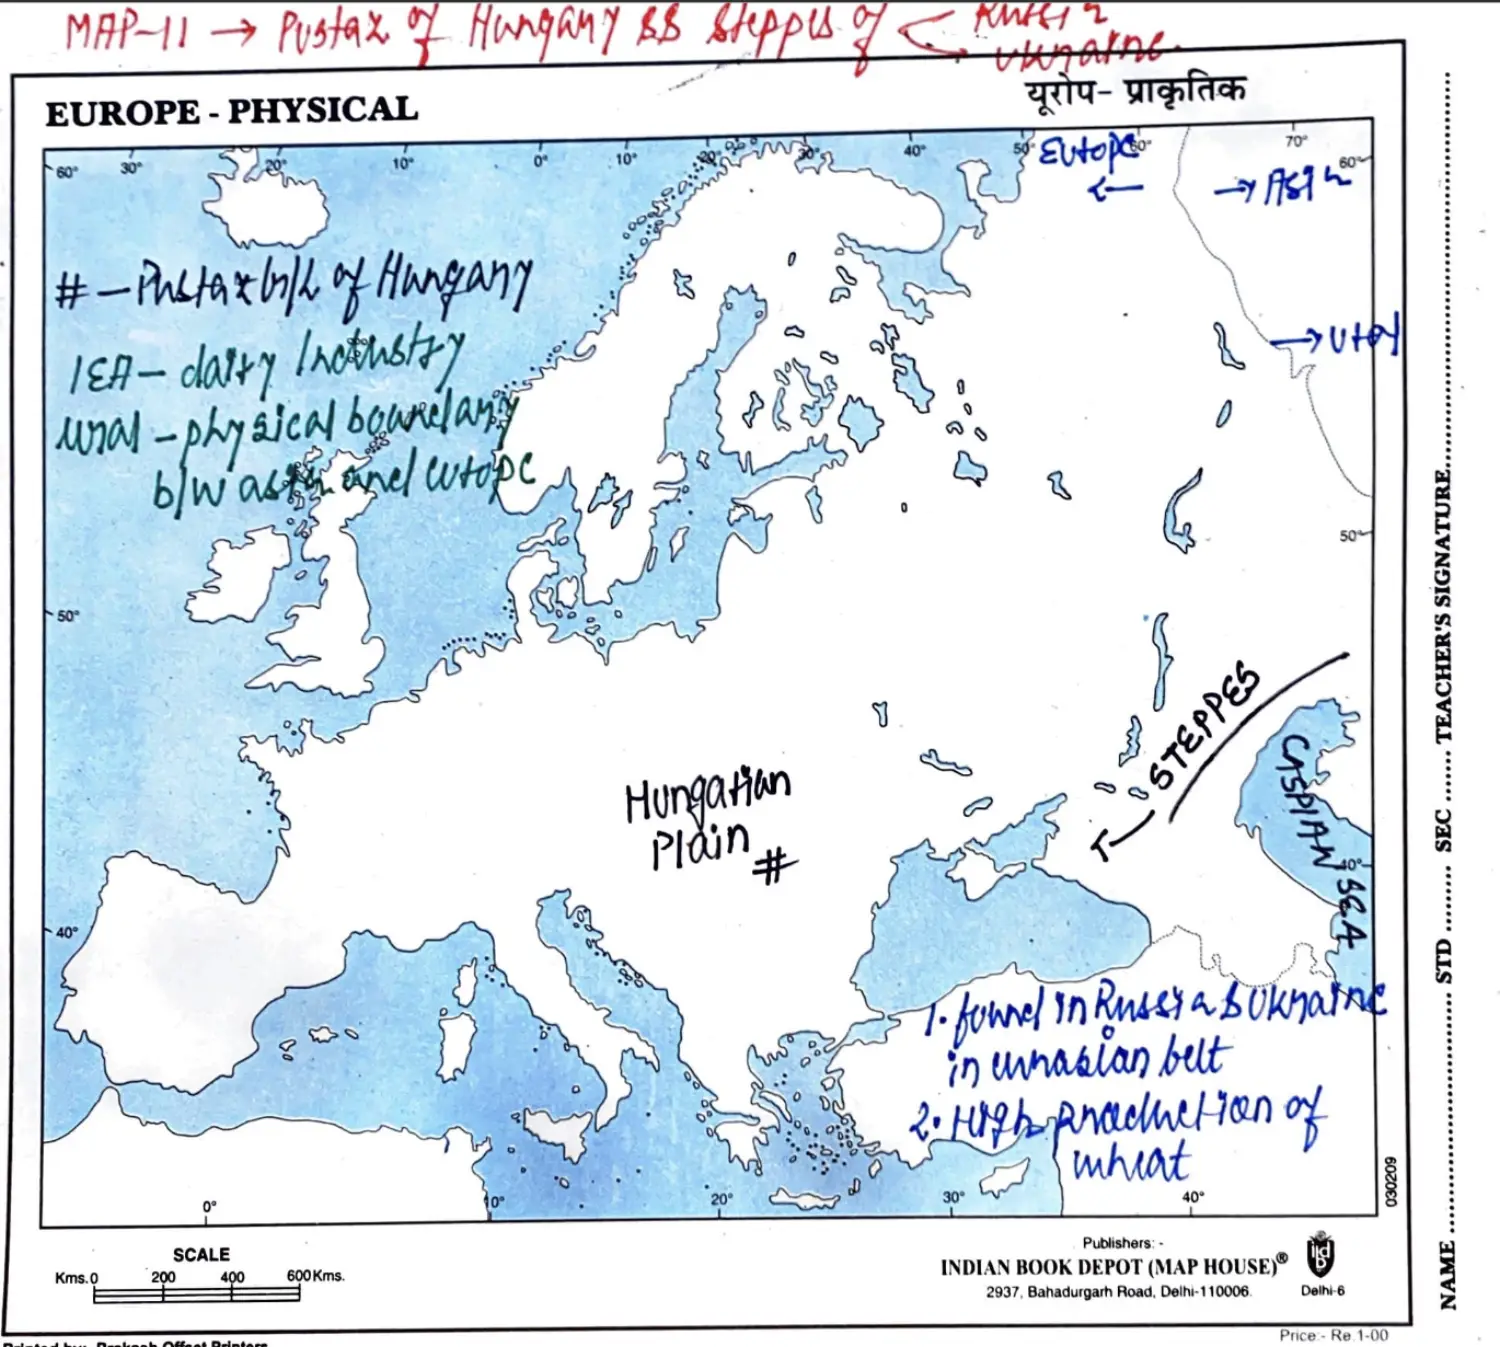 MAP-11 → Pustaz of Hungary && Steppes of < Russia
Ukraine
EUROPE - PHYSICAL
यूरोप- प्राकृतिक
60° 30° 20° 10° 0° 10° 20° 30° 40° 50° 60° 70° 60°
Europe
← → Asia
# - Pustaz G/L of Hungary
→ Ural
IEA - dairy Industry
Ural - physical boundary
b/w asia and europe
50°
50°
STEPPES
CASPIAN SEA
Hungarian
Plain
#
40°
40°
1. found in Russia & Ukraine
in eurasian belt
2. High production of
wheat
0° 10° 20° 30° 40°
030209
SCALE
Kms. 0 200 400 600 Kms.
Publishers: -
INDIAN BOOK DEPOT (MAP HOUSE)®
2937, Bahadurgarh Road, Delhi-110006.
ibd
Delhi-6
Price:- Re.1-00
Printed by: Prakash Offset Printers
NAME ........ STD ........ SEC ........ TEACHER'S SIGNATURE ........